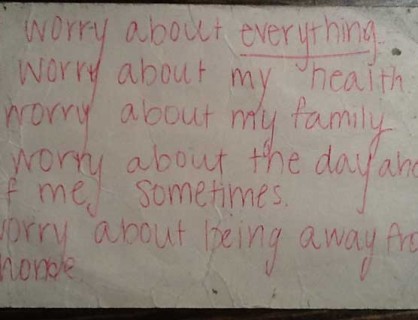 worry about everything
worry about my health
worry about my family
worry about the day and
f me, sometimes.
worry about being away fro
home